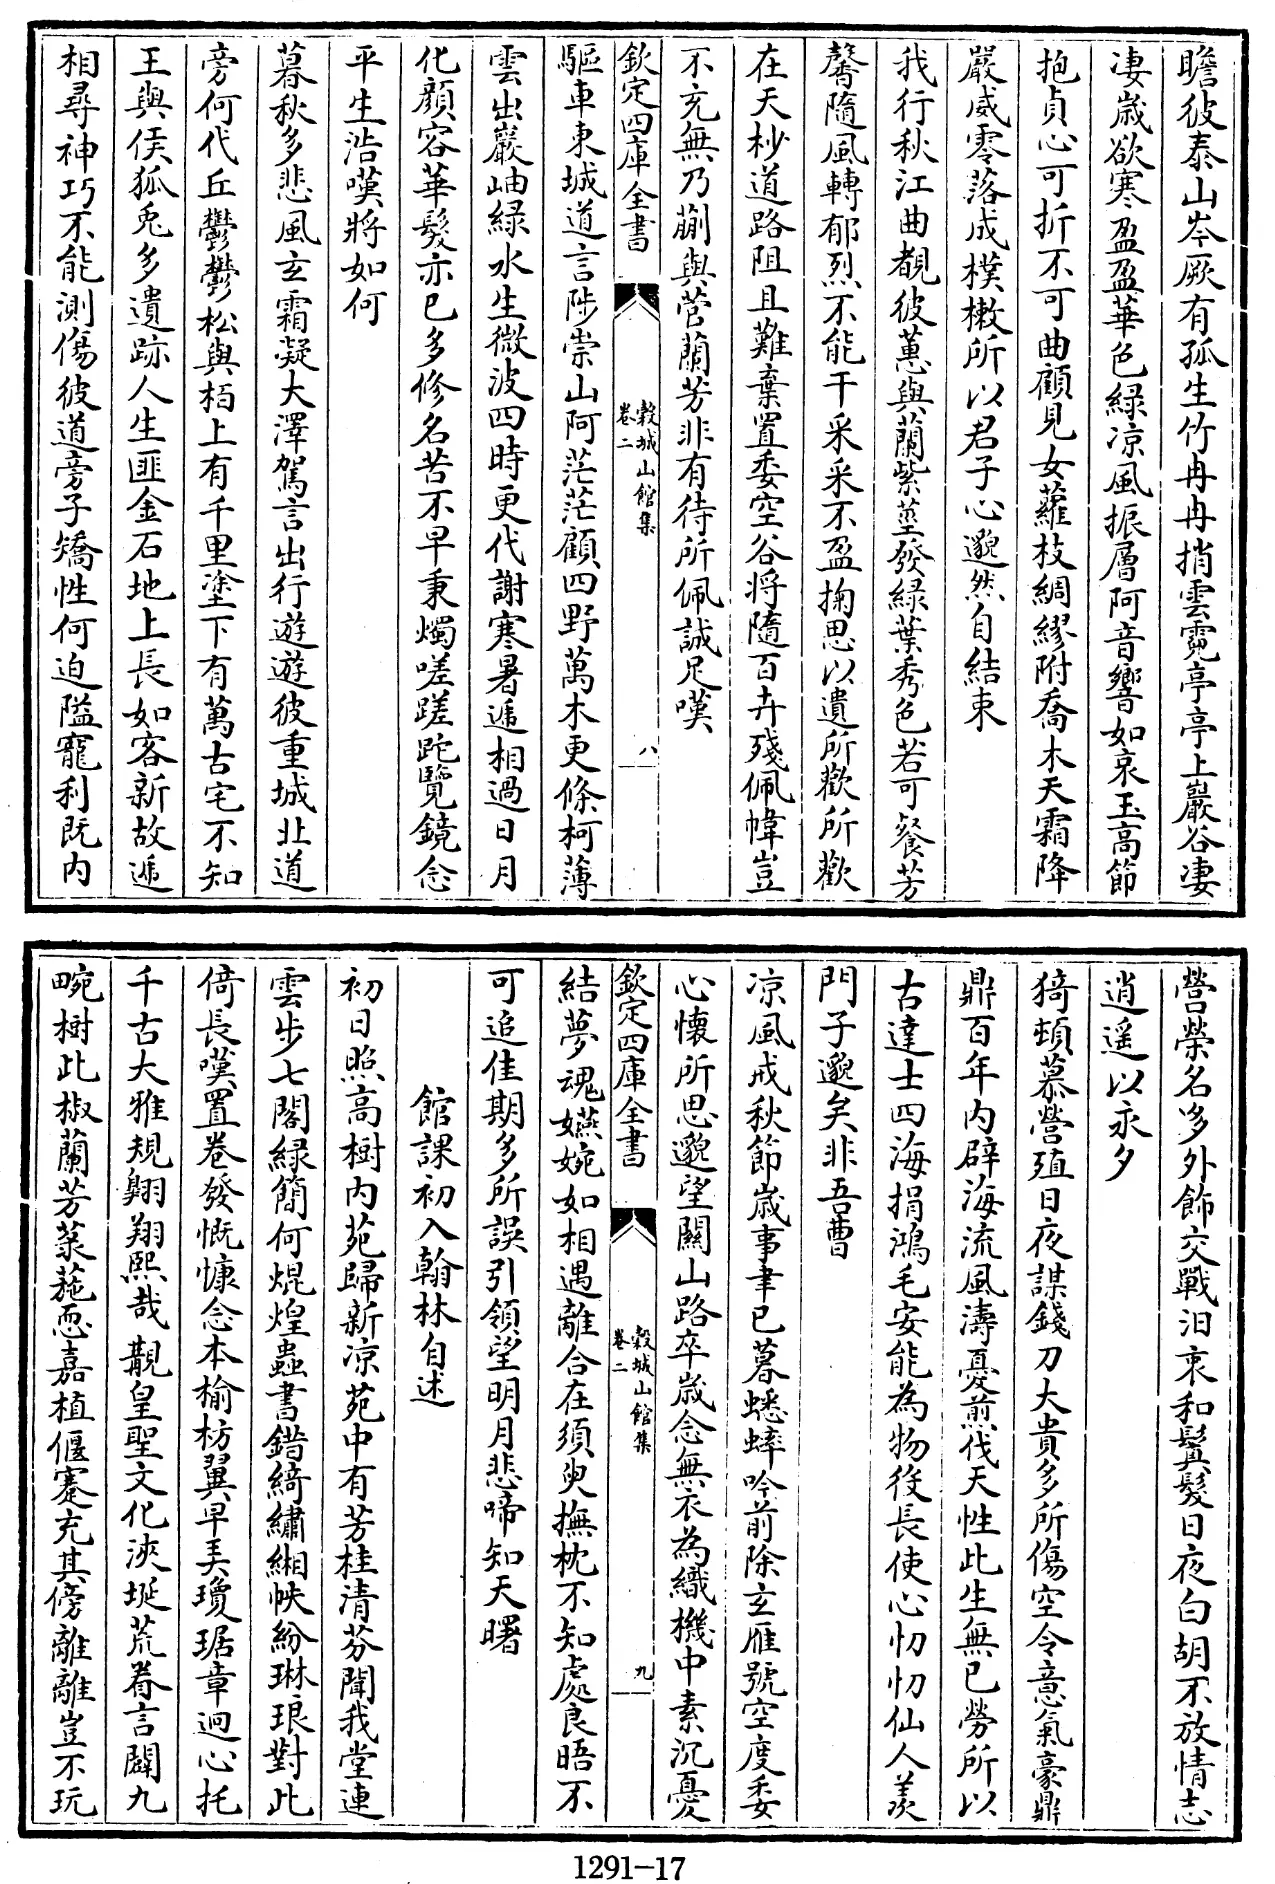 瞻彼泰山岑厥有孤生竹冉冉捎雲霓亭亭上巖谷淒
淒歲欲寒盈盈華色緑凉風振層阿音響如哀玉高節
抱貞心可折不可曲顧見女蘿枝綢繆附喬木天霜降
嚴威零落成樸樕所以君子心邈然自結束
我行秋江曲覩彼蕙與蘭紫莖發緑葉秀色若可餐芳
馨隨風轉郁烈不能干采采不盈掬思以遺所歡所歡
在天杪道路阻且難棄置委空谷將隨百卉殘佩幃豈
不充無乃蒯與菅蘭芳非有待所佩誠足嘆
欽定四庫全書
穀城山館集
卷二
八
驅車東城道言陟崇山阿茫茫顧四野萬木更條柯薄
雲出巖岫緑水生微波四時更代謝寒暑遞相過日月
化顔容華髮亦已多修名苦不早秉燭嗟蹉跎覽鏡念
平生浩嘆將如何
暮秋多悲風玄霜凝大澤駕言出行遊遊彼重城北道
旁何代丘鬱鬱松與栢上有千里塗下有萬古宅不知
王與侯狐兎多遺跡人生匪金石地上長如客新故遞
相尋神巧不能測傷彼道旁子矯性何迫隘寵利既内
營榮名多外飾交戰汨衷和鬢髮日夜白胡不放情志
逍遥以永夕
猗頓慕營殖日夜謀錢刀大貴多所傷空令意氣豪鼎
鼎百年内辟海流風濤憂煎伐天性此生無已勞所以
古達士四海捐鴻毛安能為物役長使心忉忉仙人羨
門子邈矣非吾曹
凉風戒秋節歲事聿已暮蟋蟀吟前除玄雁號空度委
心懷所思邈望關山路卒歲念無衣為織機中素沉憂
欽定四庫全書
穀城山館集
卷二
九
結夢魂嬿婉如相遇離合在須臾撫枕不知處良晤不
可追佳期多所誤引領望明月悲啼知天曙
館課初入翰林自述
初日照高樹内苑歸新凉苑中有芳桂清芬聞我堂連
雲步七閣緑簡何焜煌蟲書錯綺繡緗帙紛琳琅對此
倚長嘆置卷發慨慷念本榆枋翼早弄瓊琚章迥心托
千古大雅規翱翔熙哉覩皇聖文化浹埏荒眷言闢九
畹樹此椒蘭芳菉葹恧嘉植偃蹇充其傍離離豈不玩
1291-17